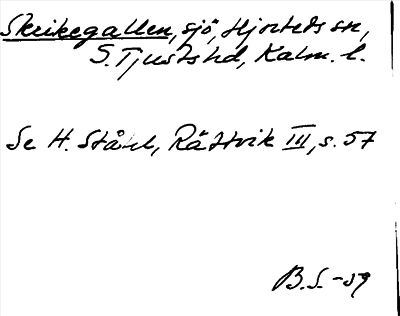 Skeikegallen, sjö, Hjorteds sn,
S. Tjusts hd, Kalm. l.
Se H. Ståhl, Rättvik III, s. 57
B.S. -59